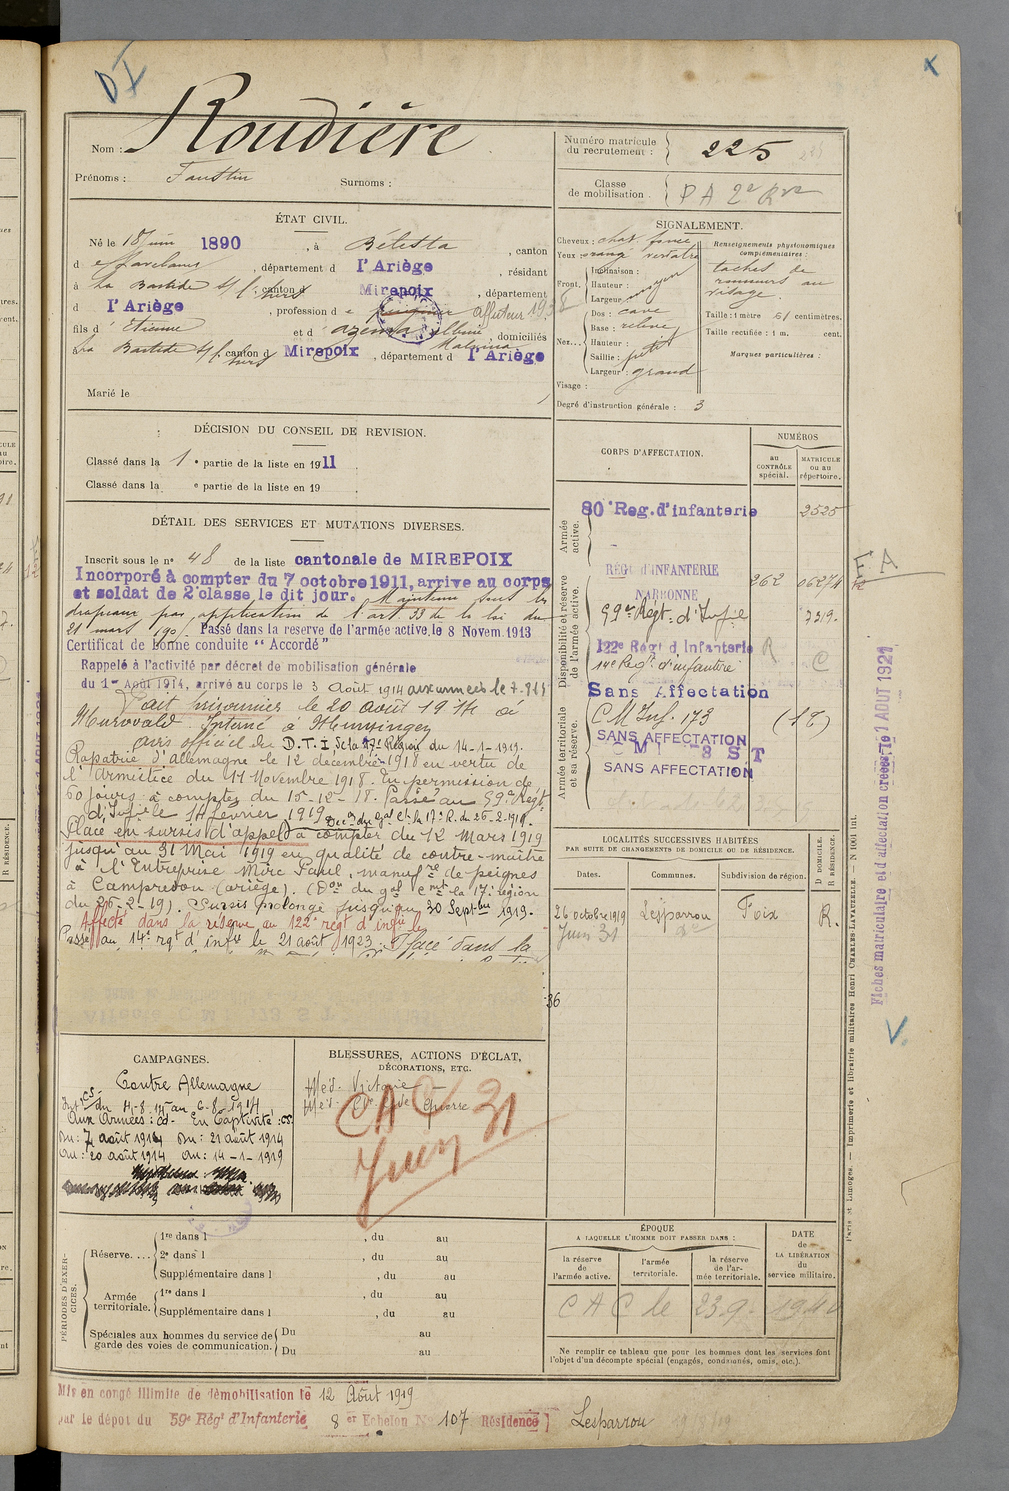 Nom : Roudière
Prénoms : Faustin Surnoms :
Numéro matricule du recrutement : 225
Classe de mobilisation P A 2e Rve
ÉTAT CIVIL.
Né le 18 Juin 1890, à Bélesta, canton
d e Lavelanet, département d l'Ariège, résidant
à La Bastide s/ l'hers canton d Mirepoix, département
d l'Ariège, profession d e affuteur 1938
fils d' Etienne et d azema domiciliés
La Bastide s/ l'hers canton d Mirepoix, département d l'Ariège
Marié le
SIGNALEMENT.
Cheveux : chat. foncé
Yeux : orangé verdatre
Front. Inclinaison :
Hauteur :
Largeur : moyen
Nez... Dos : cave
Base : relevé
Hauteur :
Saillie : petit
Largeur : grand
Visage :
Degré d'instruction générale : 3
Renseignements physionomiques complémentaires :
taches de
rousseurs au
visage.
Taille : 1 mètre 61 centimètres.
Taille rectifiée : 1 m. cent.
Marques particulières :
DÉCISION DU CONSEIL DE REVISION.
Classé dans la 1 e partie de la liste en 1911
Classé dans la e partie de la liste en 19
DÉTAIL DES SERVICES ET MUTATIONS DIVERSES.
Inscrit sous le n° 48 de la liste cantonale de MIREPOIX
Incorporé à compter du 7 octobre 1911, arrive au corps
et soldat de 2e classe, le dit jour. Maintenu sous les
drapeaux par application de l'art. 33 de la loi du
21 mars 190. Passé dans la reserve de l'armée active, le 8 Novem. 1913
Certificat de bonne conduite "Accordé"
Rappelé à l'activité par décret de mobilisation générale
du 1er Août 1914, arrivé au corps le 3 Août 1914 aux armées le 7-8-14
Fait prisonnier le 20 août 1914 à
Interné à Munsingen
avis officiel du D.T.I, de la 17e Région du 14-1-1919.
Rapatrié d'Allemagne le 12 décembre 1918 en vertu de
l'Armistice du 11 Novembre 1918. En permission de
60 jours à compter du 15-12-18. Passé au 59e Régt
d'Infie le 14 février 1919
Placé en sursis d'appel à compter du 12 Mars 1919
jusqu'au 31 Mai 1919 en qualité de contre-maître
à l'Entreprise Mirc Paul, manufre de peignes
à Campredon (ariège). (Don du gal Cmt la 17e région
du 26-2-19). Sursis prolongé jusqu'au 30 Septbre 1919.
Affecté dans la réserve au 122e régt d'infie le
Passé au 14e rgt d'infie le 21 août 1923. Placé dans la
36
CORPS D'AFFECTATION.
NUMÉROS
au CONTRÔLE spécial.
MATRICULE ou au répertoire.
Armée active.
80e Reg. d'infanterie 2525
Disponibilité et réserve de l'armée active.
RÉGt d'INFANTERIE 262 06274
NARBONNE
59e Régt d'Infie 7319.
122e Régt d'Infanterie R
14e Régt d'infanterie C
Sans Affectation
Armée territoriale et sa réserve.
C M Inf. 173
SANS AFFECTATION
SANS AFFECTATION
LOCALITÉS SUCCESSIVES HABITÉES
PAR SUITE DE CHANGEMENTS DE DOMICILE OU DE RÉSIDENCE.
Dates. Communes. Subdivision de région. D DOMICILE. R RÉSIDENCE.
26 octobre 1919 Lesparrou Foix R.
Juin 31
CAMPAGNES.
Contre Allemagne
Aux Armées : En Captivité : cs
Du : 7 août 1914 Du : 21 août 1914
au : 20 août 1914 au : 14-1-1919
BLESSURES, ACTIONS D'ÉCLAT,
DÉCORATIONS, ETC.
Méd. Victoire
Méd. Cve de guerre
C A C 31
Juin
PÉRIODES D'EXERCICES.
Réserve.... 1re dans l , du au
2e dans l , du au
Supplémentaire dans l , du au
Armée territoriale. 1re dans l , du au
Supplémentaire dans l , du au
Spéciales aux hommes du service de garde des voies de communication. Du au
Du au
ÉPOQUE
A LAQUELLE L'HOMME DOIT PASSER DANS :
la réserve de l'armée active.
l'armée territoriale.
la réserve de l'armée territoriale.
DATE de LA LIBÉRATION du service militaire.
C A C le 23.9. 1940
Ne remplir ce tableau que pour les hommes dont les services font
l'objet d'un décompte spécial (engagés, condamnés, omis, etc.).
Mis en congé illimité de démobilisation le 12 Août 1919
par le dépôt du 59e Régt d'Infanterie 8 e Echelon No 107 Résidence Lesparrou
Fiches matriculaire et d'affectation créées le 1 AOUT 1921
Paris et Limoges. — Imprimerie et librairie militaires Henri CHARLES-LAVAUZELLE.